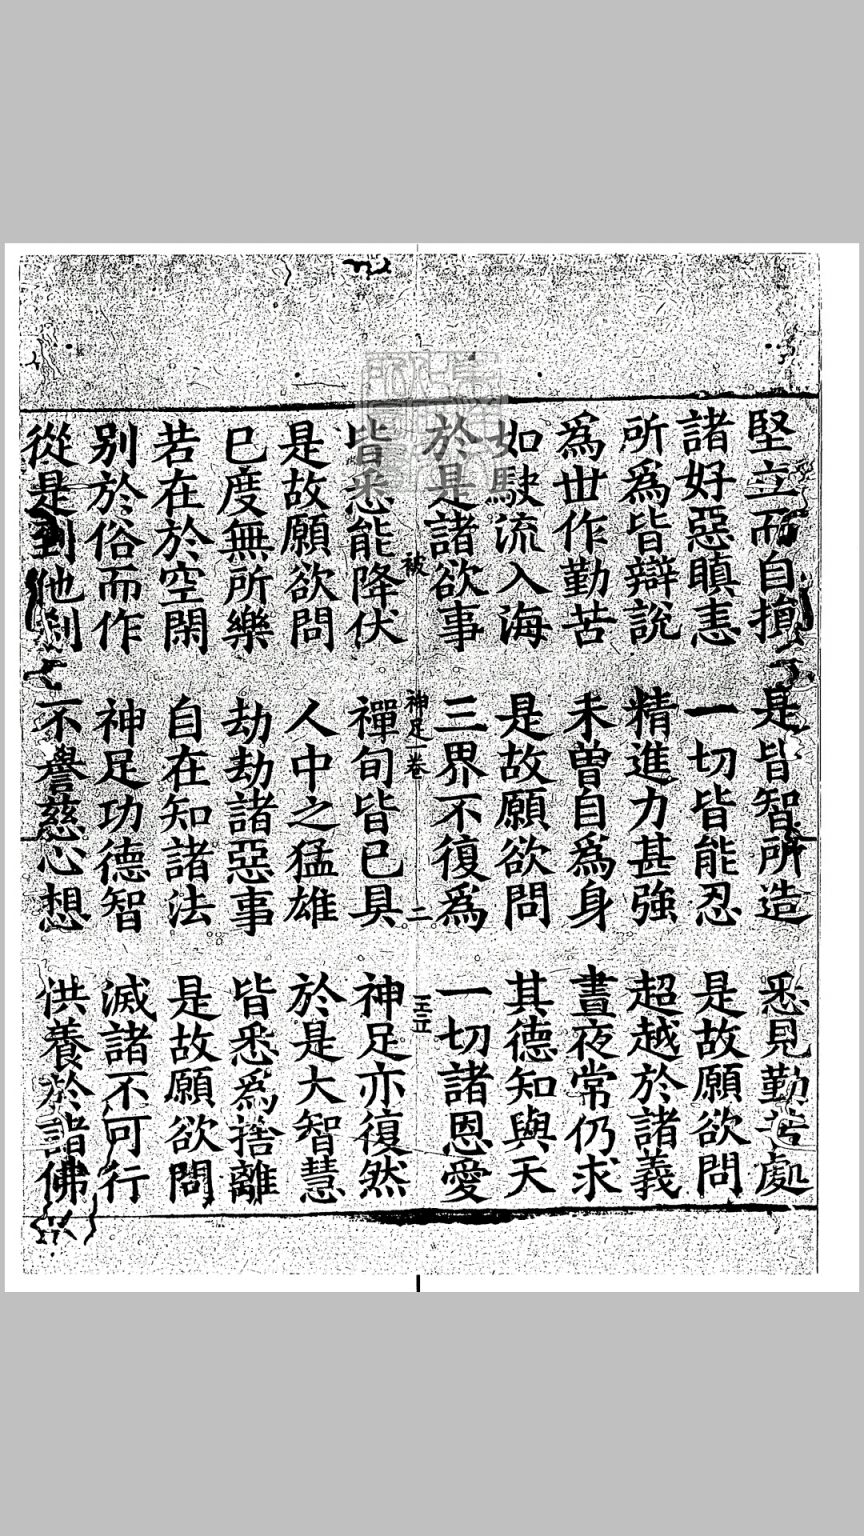 堅立而自損 是皆智所造 悉見勤苦處
諸好惡瞋恚 一切皆能忍 是故願欲問
所為皆辯說 精進力甚強 超越於諸義
為世作勤苦 未曾自為身 晝夜常仍求
如駛流入海 是故願欲問 其德知與天
於是諸欲事 三界不復為 一切諸恩愛
被 神足一卷 二
皆悉能降伏 禪旬皆已具 神足亦復然
是故願欲問 人中之猛雄 於是大智慧
已度無所樂 劫劫諸惡事 皆悉為捨離
若在於空閑 自在知諸法 是故願欲問
別於俗而作 神足功德智 滅諸不可行
從是到他剎 不譽慈心想 供養於諸佛